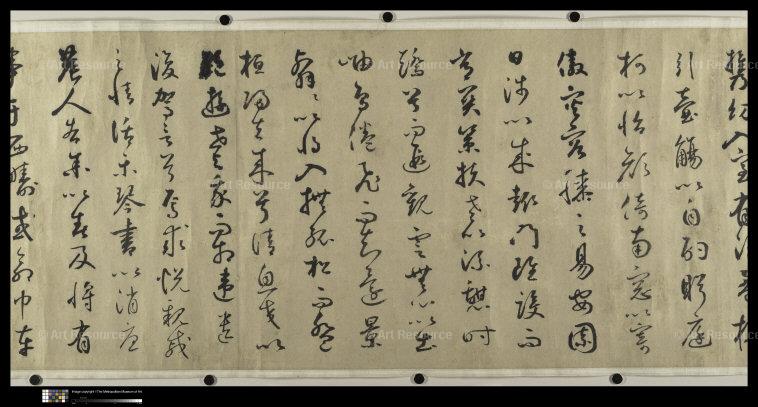 攜幼入室有酒盈樽
引壺觴以自酌眄庭
柯以怡顏倚南窗以寄
傲審容膝之易安園
日涉以成趣門雖設而
常關策扶老以流憩時
矯首而遐觀雲無心以出
岫鳥倦飛而知還景
翳翳以將入撫孤松而盤
桓歸去來兮請息交以
遊世我而違
復駕言兮焉求悅親戚
之情話樂琴書以消憂
農人告余以春及將有
事于西疇或命巾車
© Art Resource